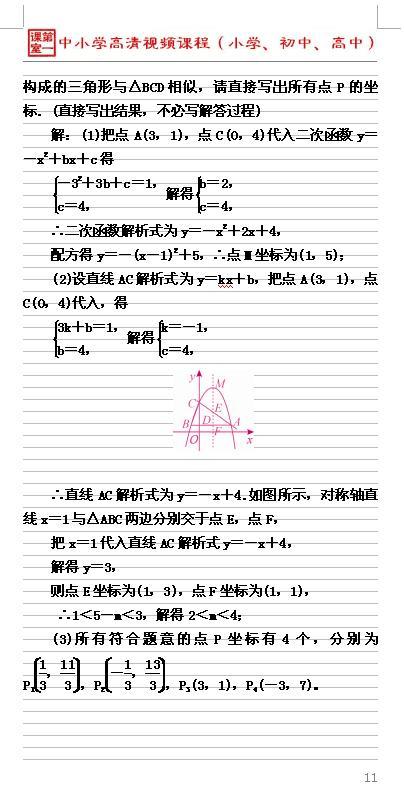 课第
堂一 中小学高清视频课程（小学、初中、高中）
构成的三角形与△BCD相似，请直接写出所有点P的坐
标．(直接写出结果，不必写解答过程)
解．(1)把点A(3，1)，点C(0，4)代入二次函数y＝
－x²＋bx＋c得
{－3²＋3b＋c＝1，c＝4， 解得{b＝2，c＝4，
∴二次函数解析式为y＝－x²＋2x＋4，
配方得y＝－(x－1)²＋5，∴点M坐标为(1，5)；
(2)设直线AC解析式为y＝kx＋b，把点A(3，1)，点
C(0，4)代入，得
{3k＋b＝1，b＝4， 解得{k＝－1，c＝4，
y
M
C
E
B D A
O F x
∴直线AC解析式为y＝－x＋4.如图所示，对称轴直
线x＝1与△ABC两边分别交于点E，点F，
把x＝1代入直线AC解析式y＝－x＋4，
解得y＝3，
则点E坐标为(1，3)，点F坐标为(1，1)，
∴1＜5－m＜3，解得2＜m＜4；
(3)所有符合题意的点P坐标有4个，分别为
P₁(1/3，11/3)，P₂(－1/3，13/3)，P₃(3，1)，P₄(－3，7)。
11